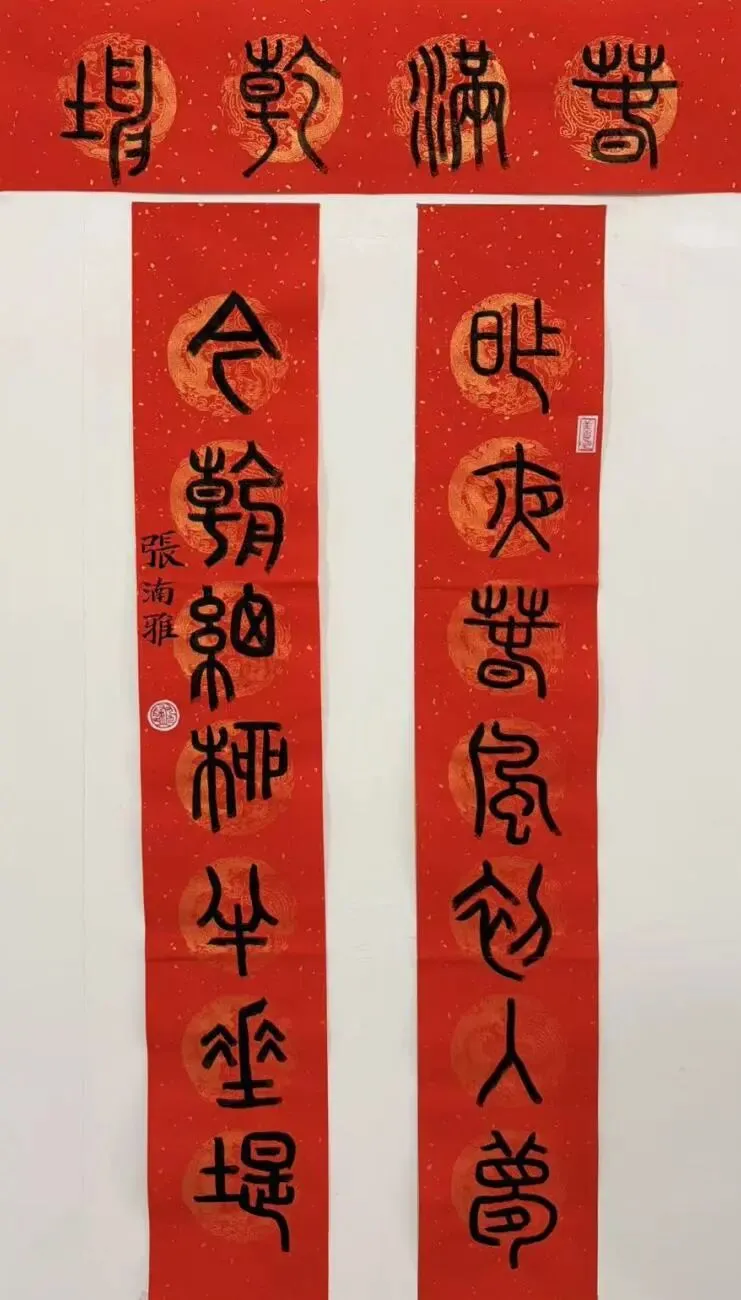 春滿乾坤
昨夜春風初入夢
今朝細柳半垂堤
張湳雅